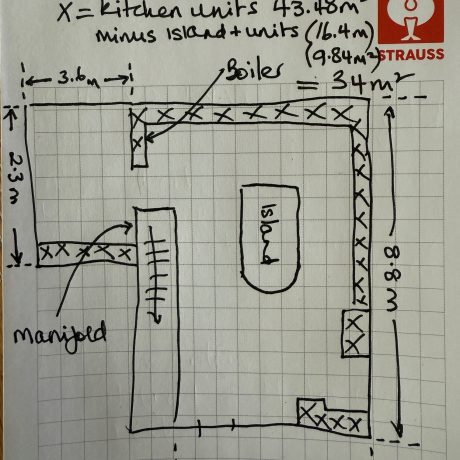 X = Kitchen units 43.48m²
minus Island + units (16.4m)
(9.84m²)
STRAUSS
= 34m²
3.6m
Boiler
X X X X X X X X
X
X
2.3m
Island
8.8m
XX X X X
Manifold
X X
X X
X X X X